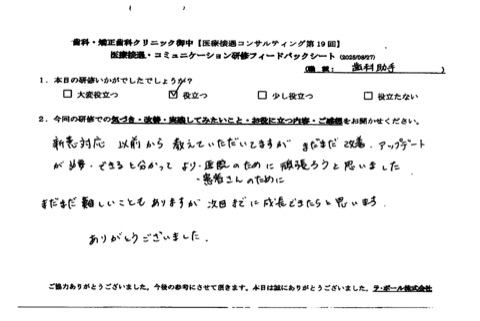 歯科・矯正歯科クリニック御中【医療接遇コンサルティング第19回】
医療接遇・コミュニケーション研修フィードバックシート (2025/08/27)
(職 種: 歯科助手 )
1．本日の研修いかがでしたでしょうか？
□ 大変役立つ ☑ 役立つ □ 少し役立つ □ 役立たない
2．今回の研修での気づき・改善・実践してみたいこと・お役に立つ内容・ご感想をお聞かせください。
対応 以前から 教えていただいてますが まだまだ 改善、アップデート
が必要・できると分かって より・医院のために 頑張ろうと思いました
・患者さんのために
まだまだ 難しいこともありますが 次回までに成長できたらと思います。
ありがとうございました。
ご協力ありがとうございました。今後の参考にさせて頂きます。本日は誠にありがとうございました。ラ・ポール株式会社